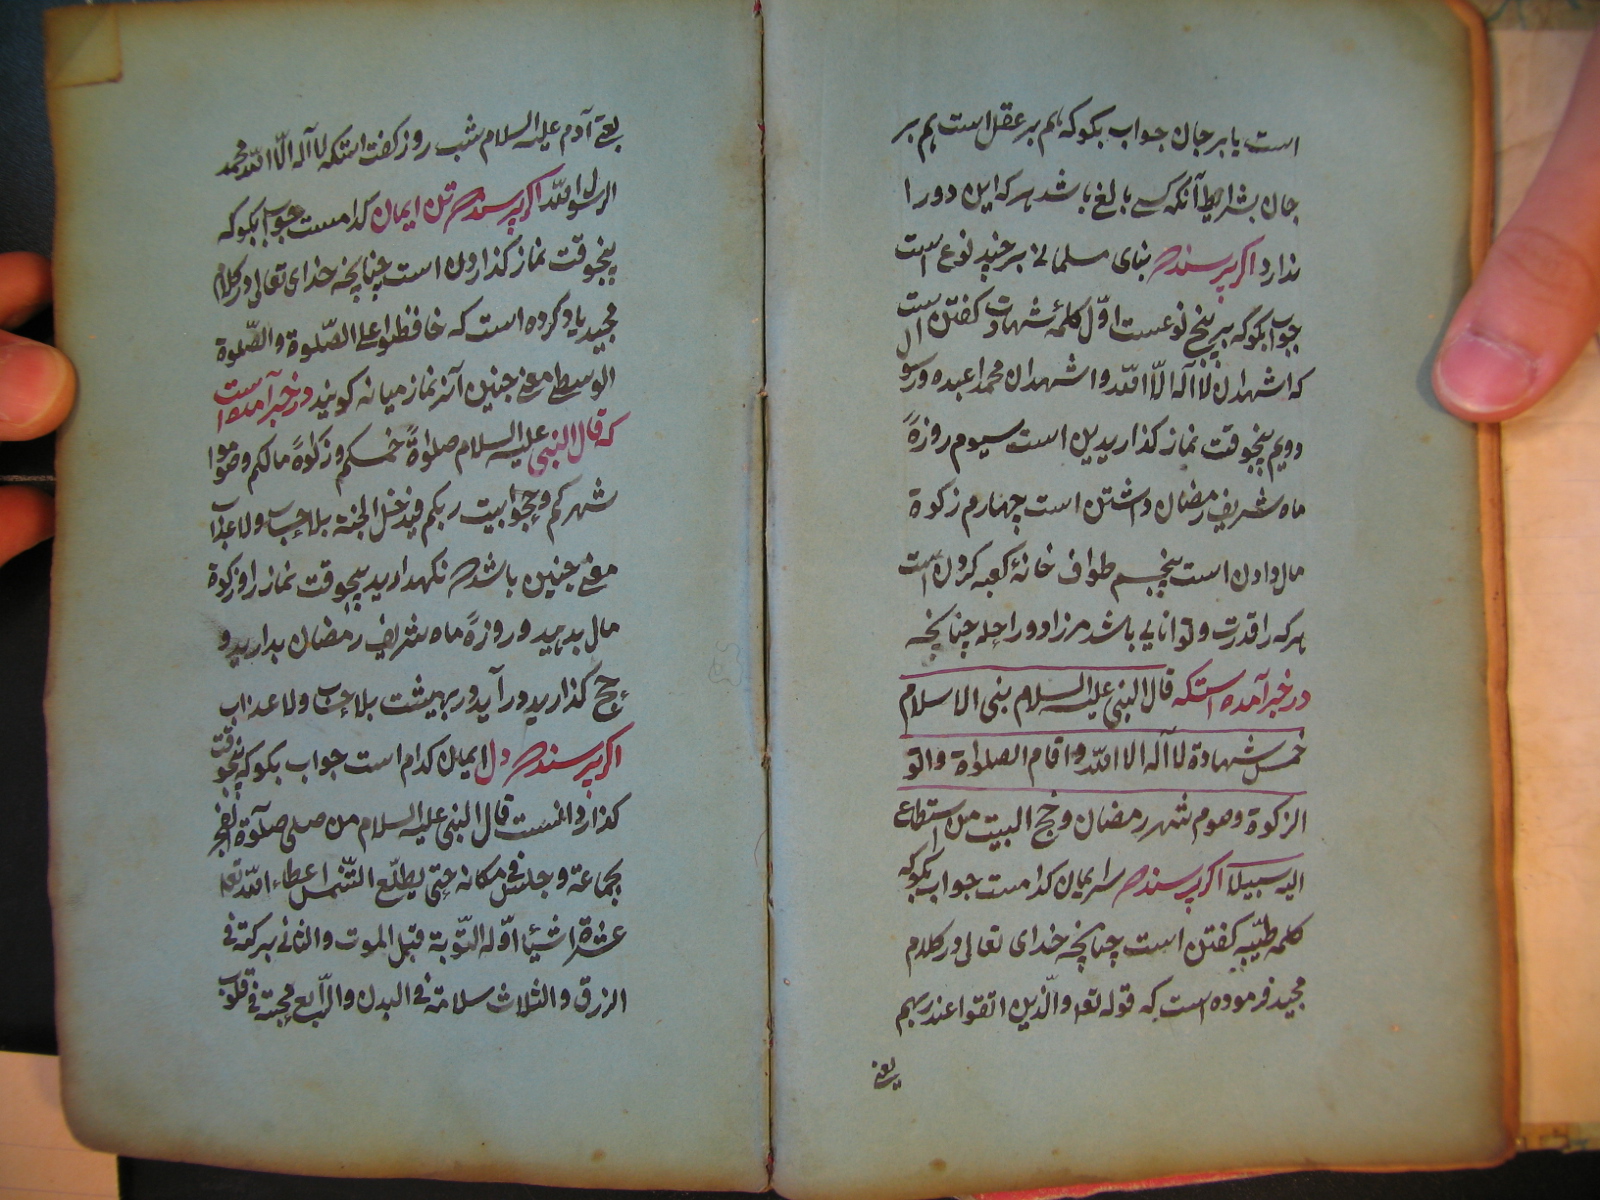 است یا بر جان جواب بکو که هم بر عقل است هم بر
جان بشرایط آنکه کسے بالغ باشد هر که این دو را
ندارد اکر پرسند که بنای مسلمانے بر چند نوع است
جواب بکو که بر پنج نوعست اوّل کلمهٔ شهادت کفتن است
که اشهد ان لآ اله الّا اللّه و اشهد ان محمدا عبده و رسوله
دویم پنجوقت نماز کذاریدن است سیوم روزهٔ
ماه شریف رمضان داشتن است چهارم زکوة
مال دادن است پنجم طواف خانهٔ کعبه کردن است
هر که را قدرت و توانایی باشد مر زاد و راحله چنانچه
در خبر آمده استکه قال النبی علیه السلام بنی الاسلام
خمس شهادة لآ آله الا اللّه و اقام الصلوة واتو
الزکوة وصوم شهر رمضان و حج البیت من استطاع
الیه سبیلا اکر پرسند که سر ایمان کدامست جواب بکو که
کلمه طیّبه کفتن است چنانچه خدای تعالی در کلام
مجید فرموده است که قوله تعه والّذین اتقوا عند ربهم
یعنے
یعنے آدم علیه السلام شب روز کفت استکه لآ آله الّا اللّه محمد
الرسول اللّه اکر پرسند که تن ایمان کدامست جواب بکو که
پنجوقت نماز کذاردن است چنانچه خدای تعالی در کلام
مجید یاد کرده است که حافظوا علے الصّلوة والصّلوة
الوسطے معنے چنین آنرا نماز میانه کویند در خبر آمده است
که قال النبی علیه السلام صلوة خمسکم و زکوة مالکم وصوموا
شهرکم و حجوا بیت ربکم فیدخل الجنة بلا حساب ولا عذاب
معنے چنین باشد که نکهدارید پنجوقت نماز را و زکوة
مال بدهید و روزهٔ ماه شریف رمضان بدارید و
حج کذارید در آید در بهشت بلا حساب ولا عذاب
اکر پرسند که دل ایمان کدام است جواب بکو که پنجوقت
کذاردانست قال النبی علیه السلام من صلی صلوة الفجر
بجماعة و جلس فی مکانه حتی یطلّع الشّمس اعطاء اللّه تعه
عشرة اشیئا اوّله التّوبة قبل الموت والثانی برکة فی
الرزق والثلاث سلامة فی البدن والرّابع محبّة فی قلوب